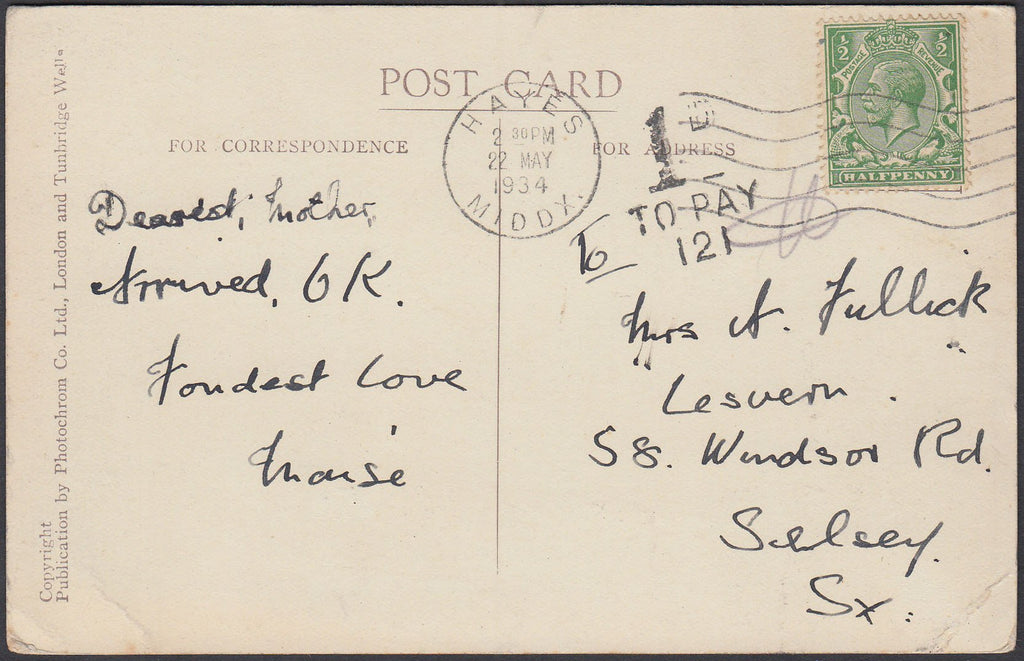 POST CARD
FOR CORRESPONDENCE
FOR ADDRESS
HAYES
2 30PM
22 MAY
1934
MIDDX.
1D
TO PAY
121
½ ½
POSTAGE REVENUE
HALFPENNY
Dearest, Mother,
Arrived, OK.
Fondest Love
Maisé
To
Mrs A. Fullick
Lesvern.
58. Windsor Rd.
Selsey.
Sx:
Copyright
Publication by Photochrom Co. Ltd., London and Tunbridge Wells